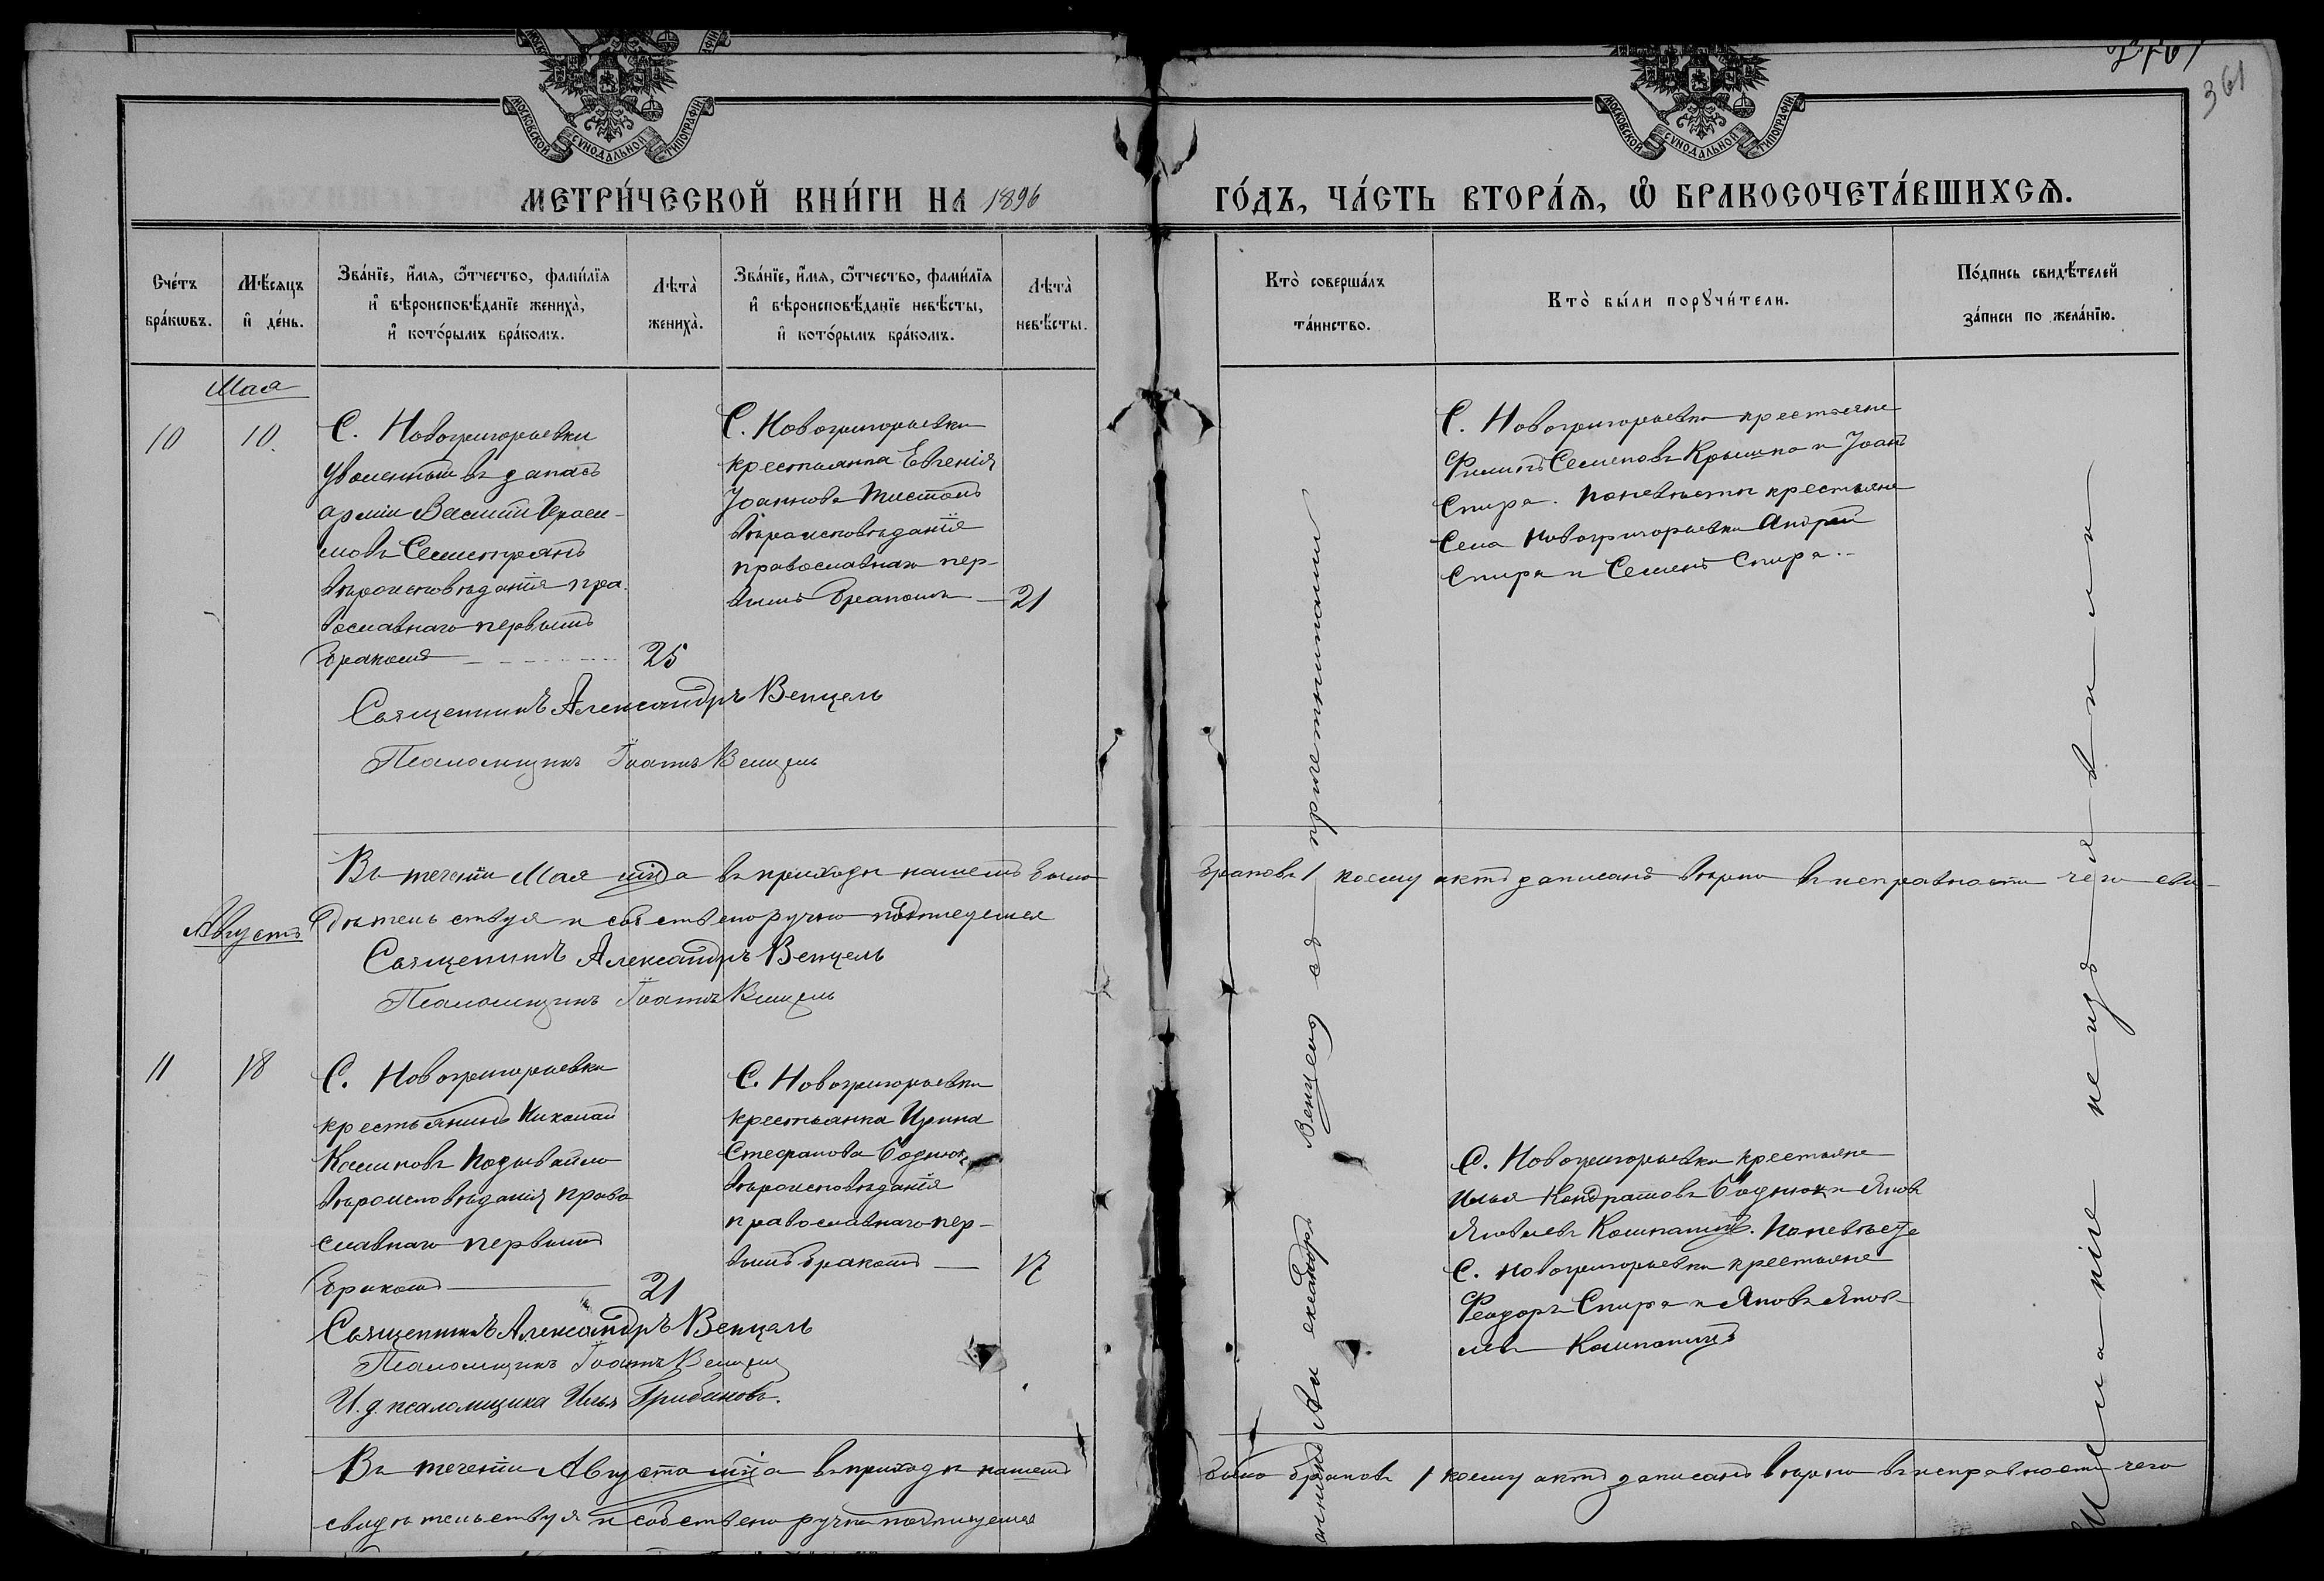 361
МОСКОВСКОЙ СУНОДАЛЬНОЙ ТИПОГРАФІИ
МОСКОВСКОЙ СУНОДАЛЬНОЙ ТИПОГРАФІИ
МЕТРИ́ЧЕСКОЙ КНИ́ГИ НА 1896
ГО́ДЪ, ЧА́СТЬ ВТОРА́Ѧ, Ѽ БРАКОСОЧЕТА́ВШИХСѦ.
Сче́тъ бра́кѡвъ.
Мѣ́сяцъ и҆ де́нь.
Зва́нїе, и҆́мѧ, ѻ҆́тчество, фами́лїѧ
и҆ вѣроисповѣ́данїе жениха̀,
и҆ кото́рымъ бра́комъ.
Лѣта̀ жениха̀.
Зва́нїе, и҆́мѧ, ѻ҆́тчество, фами́лїѧ
и҆ вѣроисповѣ́данїе невѣ́сты,
и҆ кото́рымъ бра́комъ.
Лѣта̀ невѣ́сты.
Кто̀ соверша́лъ
та́инство.
Кто̀ бы́ли порꙋчи́тели.
По́дпись свидѣ́телей
за́писи по жела́нїю.
Мая
10
10.
С. Новогригорьевки
уволенный въ запасъ
арміи Василій Гераси-
мовъ
вѣроисповѣданія пра-
вославнаго первымъ
бракомъ
25
С. Новогригорьевки
крестьянка Евгенія
Іоаннова
вѣроисповѣданія
православнаго пер-
вымъ бракомъ
21
С. Новогригорьевки крестьяне
Филипъ Семеновъ Крышка и Іоанъ
Спира. По невѣсты крестьяне
Села Новогригорьевки Андрей
Спира и Семенъ Спира.
Священникъ Александръ Венцель
Псаломщикъ Іоаннъ Венцель
Въ теченіи Мая мца въ приходѣ нашемъ было
браковъ 1 коему актъ записанъ вѣрно въ исправности чего сви-
дѣтельствуя и собственоручно подпишемся
Священникъ Александръ Венцель
Псаломщикъ Іоаннъ Венцель
Августъ
11
18
С. Новогригорьевки
крестьянинъ Николай
вѣроисповѣданія право
славнаго первымъ
бракомъ
21
С. Новогригорьевки
крестьянка Ирина
Стефанова Боднюкъ
вѣроисповѣданія
православнаго пер-
вымъ бракомъ
17
С. Новогригорьевки крестьяне
Илья Кондратовъ Боднюкъ и Яковъ
Яковлевъ Компаніецъ. По невѣсте
С. Новогригорьевки крестьяне
Феодоръ Спира и Яковъ Яков-
левъ Компаніецъ
Священникъ Александръ Венцель
Псаломщикъ Іоаннъ Венцель
И. д. псаломщика Илья Грибановъ.
Въ теченіи Августа мца въ приходѣ нашемъ
было браковъ 1 коему актъ записанъ вѣрно въ исправности чего
свидѣтельствуя и собственоручно подпишемся
Александръ Венцель съ причетниками
желаніе не изъявили